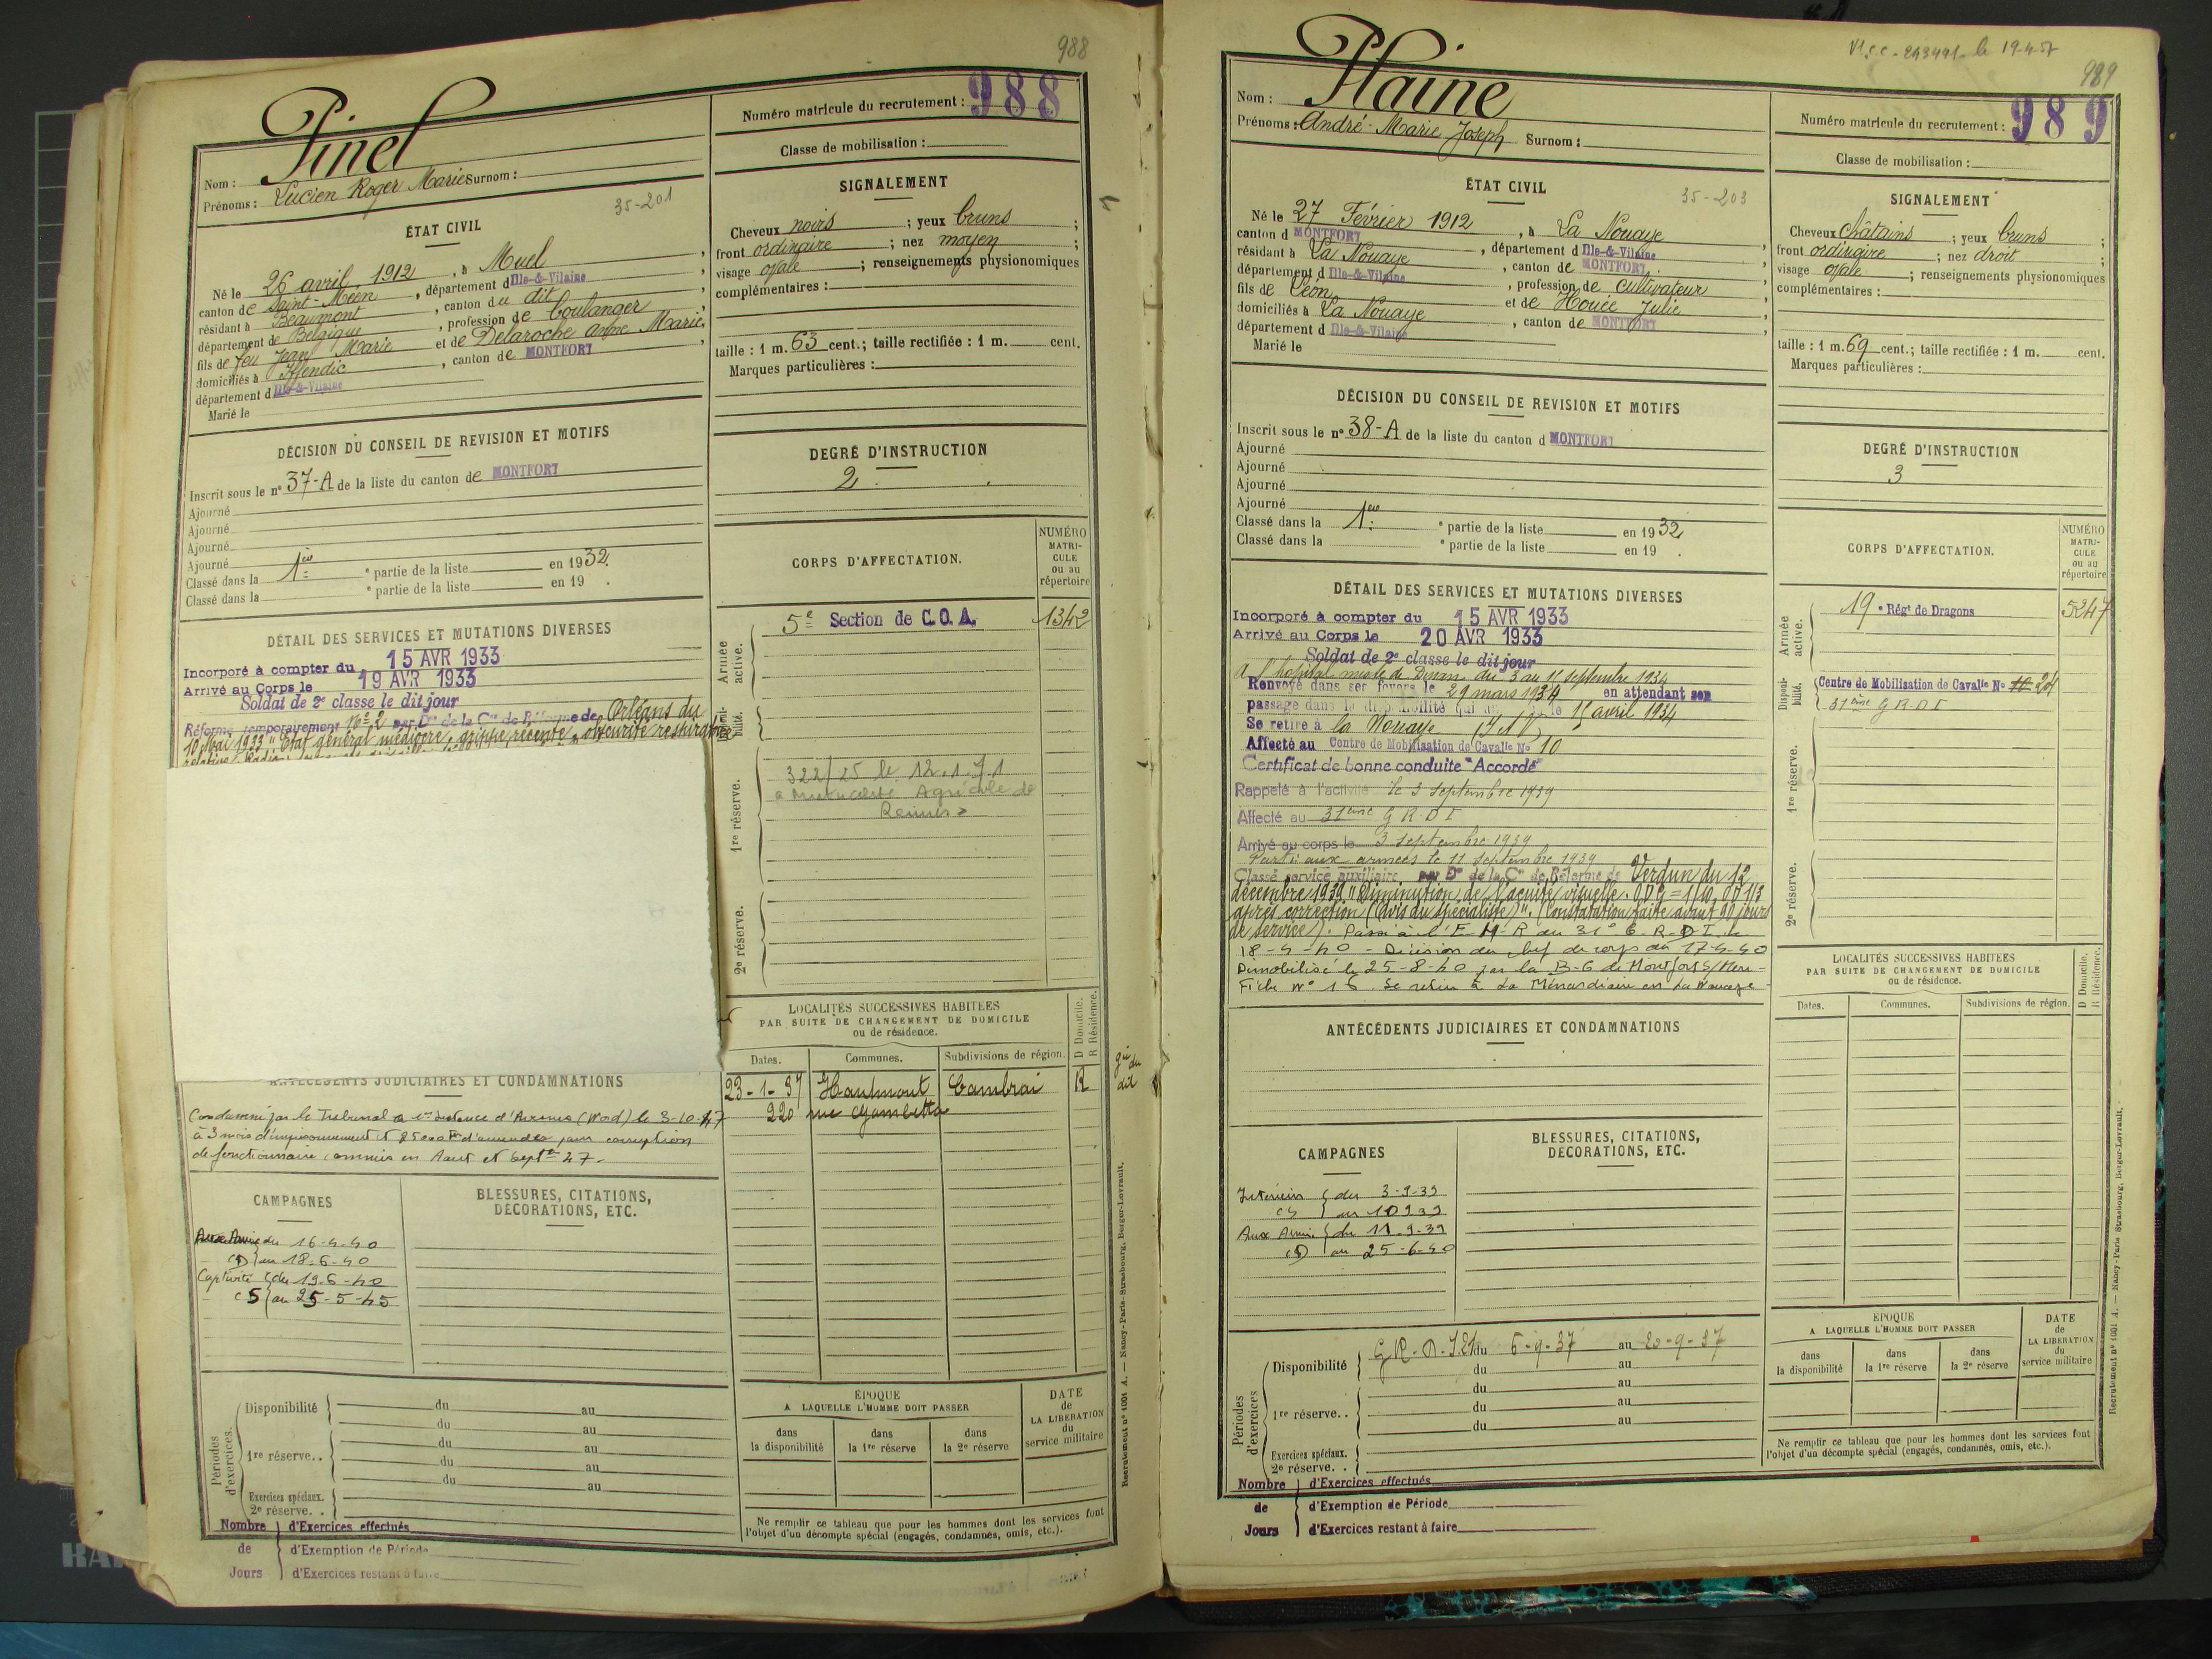 988
Pinel
Nom :
Prénoms : Lucien Roger Marie Surnom :
Numéro matricule du recrutement : 988
Classe de mobilisation :
35-201
ÉTAT CIVIL
Né le 26 avril 1912, à Muel
canton de Saint-Méen, département d Ille-&-Vilaine
résidant à Beaumont, canton du dit
département de Belgique, profession de boulanger
fils de feu Jean Marie et de Delaroche Anne Marie
domiciliés à Iffendic, canton de MONTFORT
département d Ille-&-Vilaine
Marié le
SIGNALEMENT
Cheveux noirs ; yeux bruns ;
front ordinaire ; nez moyen ;
visage ovale ; renseignements physionomiques
complémentaires :
taille : 1 m. 63 cent. ; taille rectifiée : 1 m. cent.
Marques particulières :
DÉCISION DU CONSEIL DE REVISION ET MOTIFS
Inscrit sous le n° 37-A de la liste du canton de MONTFORT
Ajourné
Ajourné
Ajourné
Ajourné
Classé dans la 1ère e partie de la liste en 1932.
Classé dans la e partie de la liste en 19 .
DEGRÉ D'INSTRUCTION
2
DÉTAIL DES SERVICES ET MUTATIONS DIVERSES
Incorporé à compter du 15 AVR 1933
Arrivé au Corps le 19 AVR 1933
Soldat de 2e classe le dit jour
Réformé temporairement n° 2 par Don de la Con de Réforme de Orléans du
10 Mai 1933 "Etat général médiocre, grippe récente, obscurité respiratoire
CORPS D'AFFECTATION.
NUMÉRO MATRICULE ou au répertoire
Armée active.
5e Section de C.O.A. 1342
Disponibilité.
1re réserve.
322/25 le 12.1.71
a Mutualité Agricole de
Rennes
2e réserve.
LOCALITÉS SUCCESSIVES HABITÉES
PAR SUITE DE CHANGEMENT DE DOMICILE
ou de résidence.
D Domicile.
R Résidence.
Dates. Communes. Subdivisions de région.
23-1-37 Hautmont Cambrai R
220 rue Gambetta
gie du dit
ANTÉCÉDENTS JUDICIAIRES ET CONDAMNATIONS
Condamné par le Tribunal de 1ère Instance d'Avesnes (Nord) le 3-10-47
à 3 mois d'emprisonnement et 25000 F d'amendes pour corruption
de fonctionnaire commis en Aout et Septre 47.
CAMPAGNES
Aux Armées du 16-4-40
au 18-6-40
Captivité du 19-6-40
au 25-5-45
BLESSURES, CITATIONS,
DÉCORATIONS, ETC.
Périodes d'exercices.
Disponibilité du au
du au
1re réserve.. du au
du au
du au
Exercices spéciaux.
2e réserve. .
ÉPOQUE
A LAQUELLE L'HOMME DOIT PASSER
dans la disponibilité
dans la 1re réserve
dans la 2e réserve
DATE de LA LIBÉRATION du service militaire
Ne remplir ce tableau que pour les hommes dont les services font
l'objet d'un décompte spécial (engagés, condamnés, omis, etc.).
Nombre d'Exercices effectués
de d'Exemption de Période
Jours d'Exercices restant à faire
Recrutement n° 1001 A. — Nancy-Paris-Strasbourg, Berger-Levrault.
le 19-4-57
989
Plaine
Nom :
Prénoms : André-Marie Joseph Surnom :
Numéro matricule du recrutement : 989
Classe de mobilisation :
35-203
ÉTAT CIVIL
Né le 27 Février 1912, à La Nouaye
canton d MONTFORT, département d Ille-&-Vilaine
résidant à La Nouaye, canton de MONTFORT
département d Ille-&-Vilaine, profession de cultivateur
fils de Léon et de Houée Julie
domiciliés à La Nouaye, canton de MONTFORT
département d Ille-&-Vilaine
Marié le
SIGNALEMENT
Cheveux châtains ; yeux bruns ;
front ordinaire ; nez droit ;
visage ovale ; renseignements physionomiques
complémentaires :
taille : 1 m. 69 cent. ; taille rectifiée : 1 m. cent.
Marques particulières :
DÉCISION DU CONSEIL DE REVISION ET MOTIFS
Inscrit sous le n° 38-A de la liste du canton d MONTFORT
Ajourné
Ajourné
Ajourné
Ajourné
Classé dans la 1ère e partie de la liste en 1932
Classé dans la e partie de la liste en 19 .
DEGRÉ D'INSTRUCTION
3
DÉTAIL DES SERVICES ET MUTATIONS DIVERSES
Incorporé à compter du 15 AVR 1933
Arrivé au Corps le 20 AVR 1933
Soldat de 2e classe le dit jour
A l'hôpital mixte de Dinan du 3 au 11 septembre 1934
Renvoyé dans ses foyers le 29 mars 1934 en attendant son
passage dans la disponibilité le 15 avril 1934
Se retire à la Nouaye (I et V)
Affecté au Centre de Mobilisation de Cavalie No 10
Certificat de bonne conduite "Accordé"
Rappelé à l'activité le 3 septembre 1939
Affecté au 31ème G R D I
Arrivé au corps le 3 septembre 1939
Parti aux armées le 11 septembre 1939
Classé service auxiliaire par Don de la Con de Réforme de Verdun du 12
décembre 1939 "Diminution de l'acuité visuelle. O D G = 1/10, OD 1/3
après correction (Avis du spécialiste)". (Constatation faite avant 90 jours
de service). Passé à l'E-M-R du 31e G-R-D-I le
18-4-40 - Décision du chef de corps du 17-4-40
Démobilisé le 25-8-40 par la B-G de Montfort S/Meu-
Fiche N° 15 Se retire à La Ménardiaie en La Nouaye-
CORPS D'AFFECTATION.
NUMÉRO MATRICULE ou au répertoire
Armée active.
19e Régt de Dragons 5247
Disponibilité.
Centre de Mobilisation de Cavalie No 10 204
31ème G R D I
1re réserve.
2e réserve.
LOCALITÉS SUCCESSIVES HABITÉES
PAR SUITE DE CHANGEMENT DE DOMICILE
ou de résidence.
D Domicile.
R Résidence.
Dates. Communes. Subdivisions de région.
ANTÉCÉDENTS JUDICIAIRES ET CONDAMNATIONS
CAMPAGNES
Intérieur du 3-9-39
au 10 9 39
Aux Armées du 11-9-39
au 25-6-40
BLESSURES, CITATIONS,
DÉCORATIONS, ETC.
Périodes d'exercices
Disponibilité G R-D-I 21 du 6-9-37 au 20-9-37
du au
du au
1re réserve.. du au
du au
Exercices spéciaux.
2e réserve. .
ÉPOQUE
A LAQUELLE L'HOMME DOIT PASSER
dans la disponibilité
dans la 1re réserve
dans la 2e réserve
DATE de LA LIBÉRATION du service militaire
Ne remplir ce tableau que pour les hommes dont les services font
l'objet d'un décompte spécial (engagés, condamnés, omis, etc.).
Nombre d'Exercices effectués
de d'Exemption de Période
Jours d'Exercices restant à faire
Recrutement n° 1001 A. — Nancy-Paris-Strasbourg, Berger-Levrault.